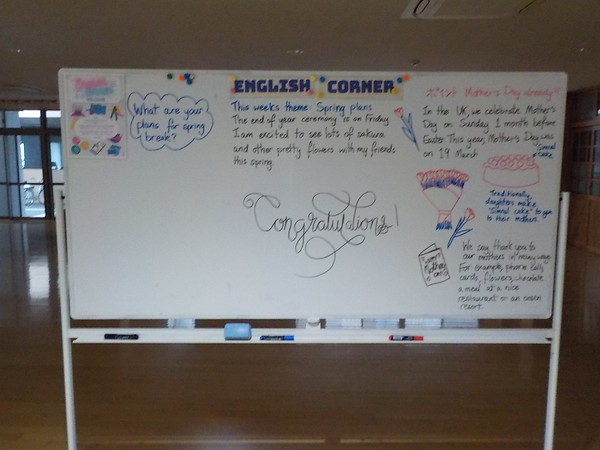 What are your
plans for spring
break?
ENGLISH CORNER
This weeks theme: Spring plans
The end of year ceremony is on Friday
I am excited to see lots of sakura
and other pretty flowers with my friends
this spring
Congratulations!
ポイント Mother's Day already?!
In the UK, we celebrate Mother's
Day on Sunday 1 month before
Easter. This year, Mother's Day was
on 19 March
"Simnel
cake"
Traditionally,
daughters make
"Simnel cake" to give
to their mothers
HAPPY
Mothers
DAY
We say thank you to
our mothers in many ways
For example, phone calls,
cards, flowers, chocolate
a meal at a nice
restaurant or an onsen
resort.